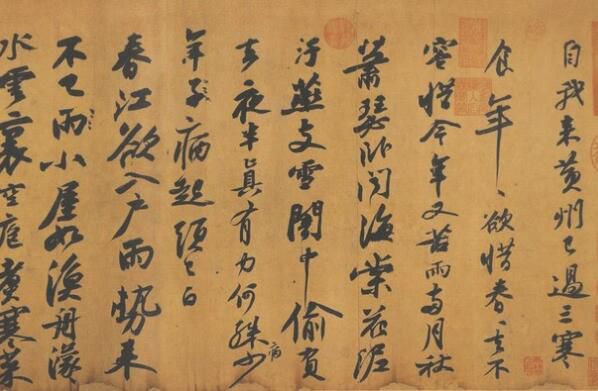 自我来黄州已過三寒
食年〻欲惜春〻去不
容惜今年又苦雨兩月秋
蕭瑟卧聞海棠花泥
汙燕支雪闇中偷負
去夜半真有力何殊少病
年子病起須已白
春江欲入户雨勢来
不已雨小屋如漁舟濛
水雲裏空庖煮寒菜